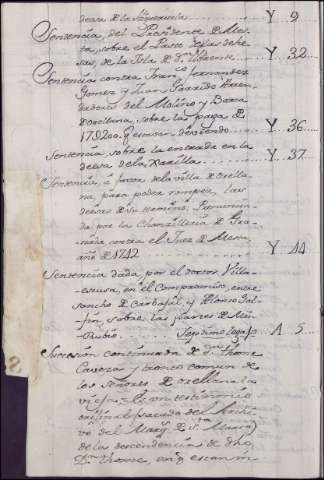 desa de la
Sentencia, del Presidente de Mes-
ta, sobre el Pasto de las dehe-
sas, de la Isla de Sn. Vizente ... Y. 32.
Sentencia contra Franco. fernandez
Gomez y Juan Parejo Arren-
dadores del Molino y Barca
de orellana, sobre la paga de
17.200. que estan deviendo ... Y. 36
Sentencia, sobre la entrada en la
desa de la ... Y. 37.
Sentencia, á favor de la villa de orella-
na, para poder romper, las
desas de su termino, Pronuncia-
da por la Chanzilleria de Gra-
nada, contra el Juez de Mesta,
año de 1742 ... Y. 44
Sentencia dada, por el doctor, Villa-
escusa, en el Compromiso, entre
sancho de Carbajal, y Alonso Gol-
fin, sobre, las partes de
Rubio. Septimo legajo .. A 5.
Sucesion continuada de Dn. thome
Caveza y tronco comun de
los señores de orellana la
vieja. Es un testimonio
original sacado del Archi-
vo del Marqs de Sn.
de la descendencia de dho
Dn. thome, en q estan in-